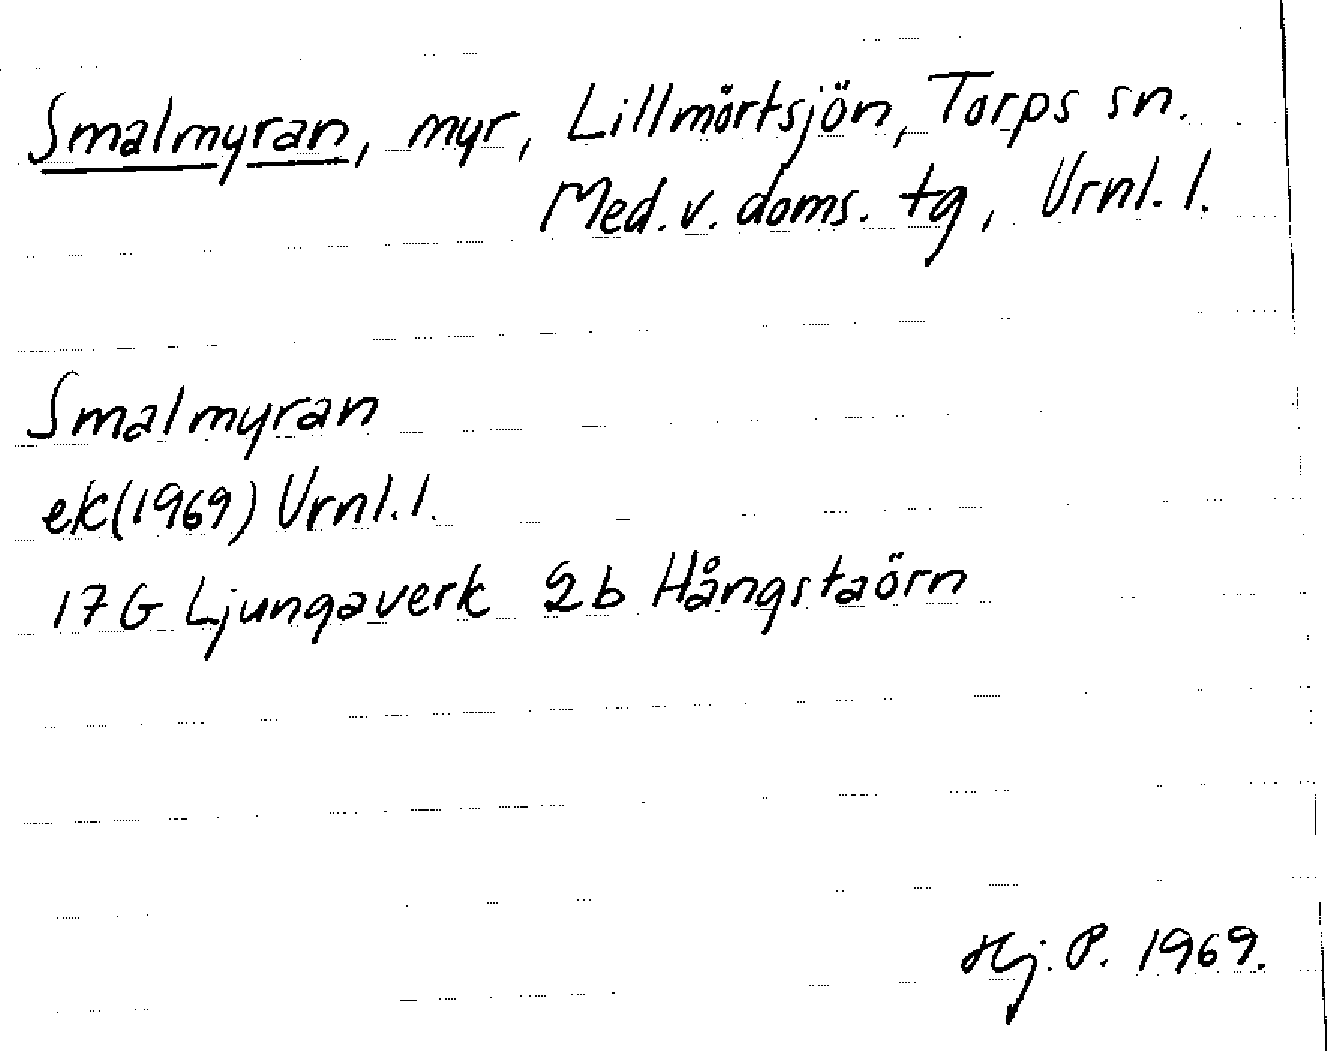 Smalmyran, myr, Lillmörtsjön, Torps sn.
Med. v. doms. tg, Urnl. l.
Smalmyran
ek(1969) Urnl. l.
17G Ljungaverk 2b Hångstaörn
Hj. P. 1969.